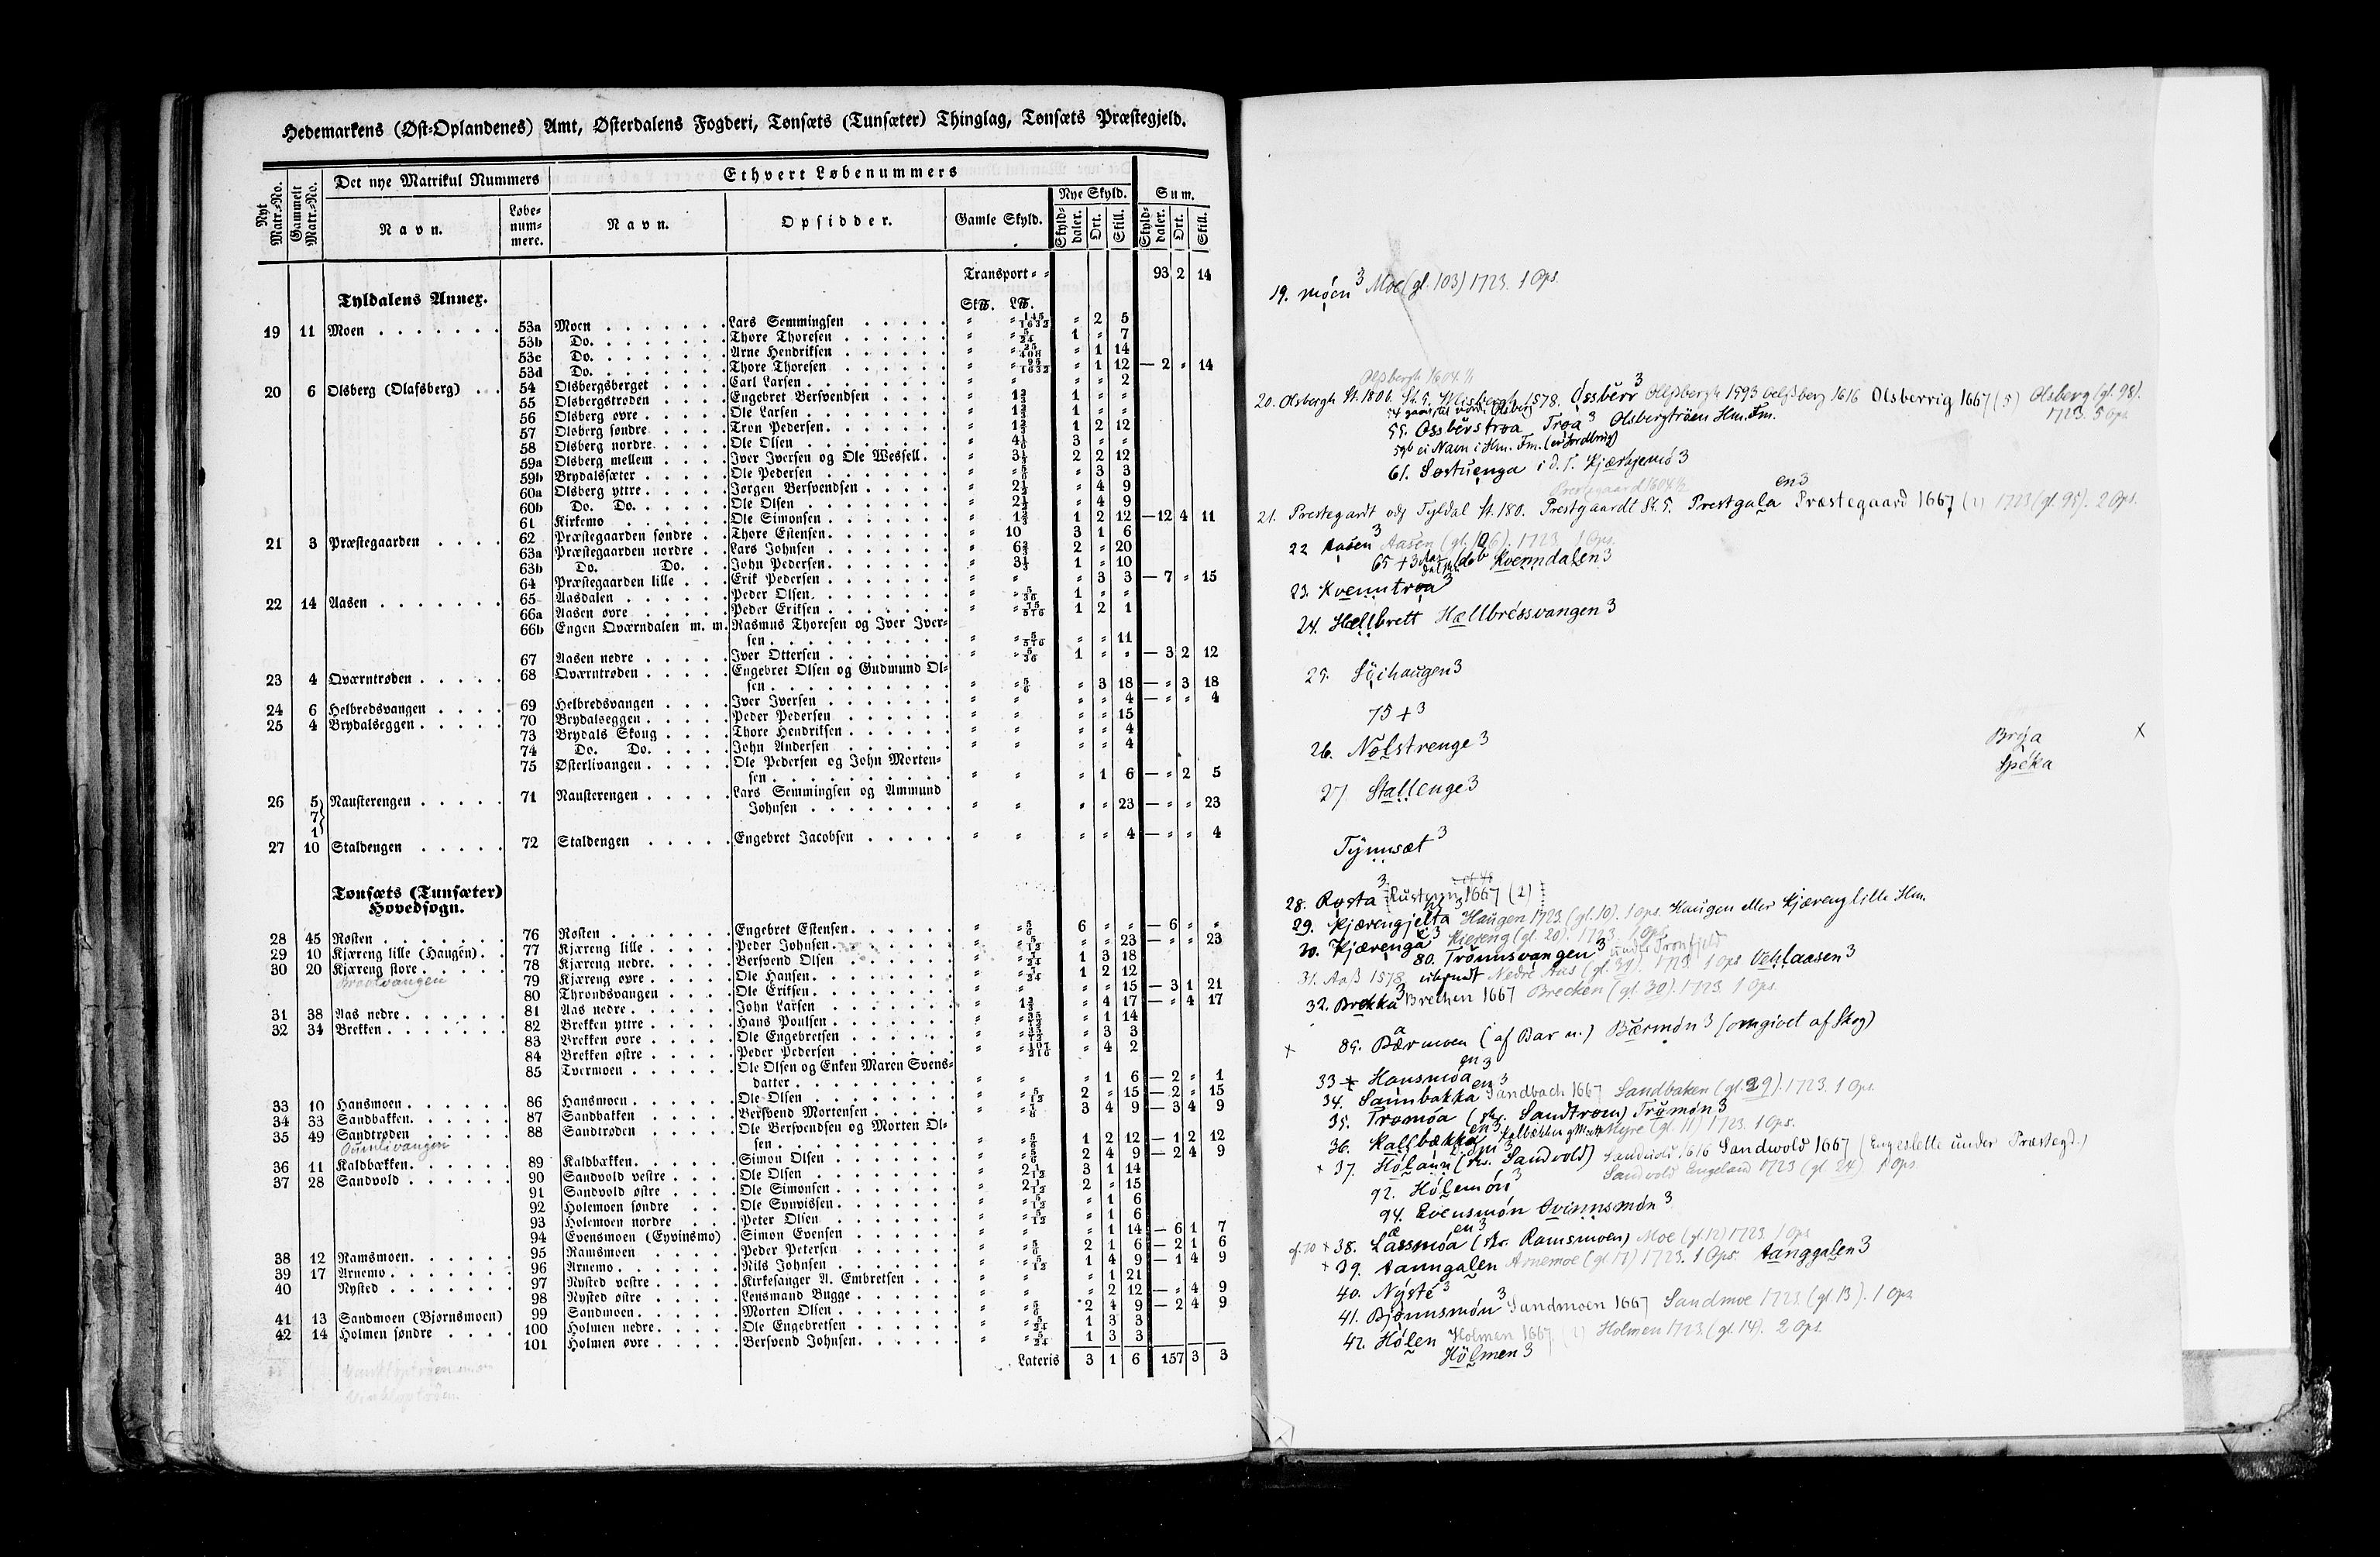 Hedemarkens (Øst-Oplandenes) Amt, Østerdalens Fogderi, Tønsæts (Tunsæter) Thinglag, Tønsæts Præstegjeld.
Nyt Matr.-No. Gammelt Matr.-No. Det nye Matrikul Nummers Ethvert Løbenummers
Nye Skyld. Sum.
Navn. Løbe-num-mere. Navn. Opsidder. Gamle Skyld. Skyld-daler. Ort. Skill. Skyld-daler. Ort. Skill.
Transport 93 2 14
Tyldalens Annex.
19 11 Moen 53a Moen Lars Semmingsen 2 5
53b Do. Thore Thoresen 1 " 7
53c Do. Arne Hendriksen " 1 14
53d Do. Thore Thoresen " 1 12 — 2 " 14
20 6 Olsberg (Olafsberg) 54 Olsbergsberget Carl Larsen " " 2
55 Olsbergstrøden Engebret Bersvendsen 1 " "
56 Olsberg øvre Ole Larsen 1 " "
57 Olsberg søndre Tron Pedersen 1 2 12
58 Olsberg nordre Ole Olsen 3 " "
59a Olsberg mellem Iver Iversen og Ole Wessell 2 2 12
59b Brydalssæter Ole Pedersen " 3 3
60a Olsberg yttre Jørgen Bersvendsen " 4 9
60b Do. Do. Ole Olsen " 4 9
61 Kirkemo Ole Simonsen 1 2 12 — 12 4 11
21 3 Præstegaarden 62 Præstegaarden søndre Thore Estensen 10 3 1 6
63a Præstegaarden nordre Lars Johnsen 2 " 20
63b Do. Do. John Pedersen 1 " 10
64 Præstegaarden lille Erik Pedersen " 3 3 — 7 " 15
22 14 Aasen 65 Aasdalen Peder Olsen 1 " "
66a Aasen øvre Peder Eriksen 1 2 1
66b Engen Qværndalen m. m. Rasmus Thoresen og Iver Iver-
sen " " 11
67 Aasen nedre Iver Ottersen 1 " " — 3 2 12
23 4 Qværntrøden 68 Qværntrøden Engebret Olsen og Gudmund Ol-
sen " 3 18 — " 3 18
24 6 Helbredsvangen 69 Helbredsvangen Iver Iversen " " 4 — " " 4
25 4 Brydalseggen 70 Brydalseggen Peder Pedersen " " 15
73 Brydals Skoug Thore Hendriksen " " 4
74 Do. Do. John Andersen " " 4
75 Østerlivangen Ole Pedersen og John Morten-
sen " 1 6 — " 2 5
26 5 7 1 Nausterengen 71 Nausterengen Lars Semmingsen og Ammund
Johnsen " " 23 — " " 23
27 10 Staldengen 72 Staldengen Engebret Jacobsen " " 4 — " " 4
Tønsæts (Tunsæter)
Hovedsogn.
28 45 Røsten 76 Røsten Engebret Estensen 6 " " — 6 " "
29 10 Kjæreng lille (Haugen) 77 Kjæreng lille Peder Johnsen " " 23 — " " 23
30 20 Kjæreng store 78 Kjæreng nedre Bersvend Olsen 1 3 18
79 Kjæreng øvre Ole Hansen 1 2 12
80 Throndsvangen Ole Eriksen " " 15 — 3 1 21
31 38 Aas nedre 81 Aas nedre John Larsen " 4 17 — " 4 17
32 34 Brekken 82 Brekken yttre Hans Poulsen " 1 14
83 Brekken øvre Ole Engebretsen " 3 3
84 Brekken østre Peder Pedersen " 4 2
85 Tvermoen Ole Olsen og Enken Maren Svens-
datter " 1 6 — 2 " 1
33 10 Hansmoen 86 Hansmoen Ole Olsen 2 " 15 — 2 " 15
34 33 Sandbakken 87 Sandbakken Bersvend Mortensen 3 4 9 — 3 4 9
35 49 Sandtrøden 88 Sandtrøden Ole Bersvendsen og Morten Ol-
sen 1 2 12 — 1 2 12
36 11 Kaldbækken 89 Kaldbækken Simon Olsen 2 4 9 — 2 4 9
37 28 Sandvold 90 Sandvold vestre Ole Olsen 3 1 14
91 Sandvold østre Ole Simonsen 2 " 15
92 Holemoen søndre Ole Synvissen " 1 6
93 Holemoen nordre Peter Olsen " 1 6
94 Evensmoen (Eyvinsmo) Simon Evensen " 1 14 — 6 1 7
38 12 Ramsmoen 95 Ramsmoen Peder Petersen 2 1 6 — 2 1 6
39 17 Arnemo 96 Arnemo Nils Johnsen 1 4 9 — 1 4 9
40 Nysted 97 Nysted vestre Kirkesanger A. Embretsen " 1 21
98 Nysted østre Lensmand Bugge " 2 12 — " 4 9
41 13 Sandmoen (Bjørnsmoen) 99 Sandmoen Morten Olsen 2 4 9 — 2 4 9
42 14 Holmen søndre 100 Holmen nedre Ole Engebretsen 1 3 3
101 Holmen øvre Bersvend Johnsen 1 3 3
Lateris 3 1 6 157 3 3
19. móen 3 Moe (gl. 103) 1723. 1 Ops.
20. Olsbergh St. 180b. 1578. Óssbérr 3 Olssbergh 1593 1616 Olsberrig 1667 (5) Olsberg (gl. 98).
1723. 5 Ops.
55. Ossbérstrøa Trøa 3 Olsbergtrøen Hm. Fm.
59b ei Navn i Hm. Fm. (en Jordbrug)
61. Søstuenga i d. T. Kjærkjemó 3
21. Prestegardt Tyldal St. 180. Prestgaardt St. 5. Prestgala en 3 Præstegaard 1667 (1) 1723 (gl. 95). 2 Ops.
22 Aasen 3 Aasen 1723. 1 Ops.
Kvenndalen 3
23. Kvenntrøa 3
24. Hællbrett Hællbréssvangen 3
25. Söihaugen 3
75 + 3
26. Nølstrenge 3
Brýa
Spéka
27. Stallenge 3
Týnnsæt 3
28. Røsta 3 Rustenn 1667 (2)
29. Kjærengjelta Haugen 1723. (gl. 10). 1 Ops. Haugen eller Kjæreng lille Hm.
30. Kjærenga 3 Kiereng (gl. 20). 1723. 1 Ops.
80. Trønnsvangen 3 under Tronfjeld
31. Aaß 1578 Nedre Aas (gl. 37). 1723. 1 Ops
32. Brekka 3 Brechen 1667 Brecken (gl. 30). 1723. 1 Ops.
85. Bærmoen (af Bar n.) Bærmón 3 (omgivet af Skog)
33 Hansmóa en 3
34. Sannbakka en 3 Sandbach 1667 Sandbaken (gl. 29). 1723. 1 Ops.
35. Trømóa (skr. Sandtrøen) Trømón 3
36. Kallbækka en 3 Myre (gl. 11) 1723. 1 Ops.
37. Hólann (skr. Sandvold) 1616 Sandwold 1667 (Engeslette under Præstegd.)
Sandvold Engeland 1723 (gl 24) 1 Ops.
92. Hólemón 3
94. Evensmón Øvinnsmón 3
38. Lassmóa en 3 (skr. Ramsmoen) Moe (gl. 12) 1723. 1 Ops
39. Aanngalen Arnemoe (gl 17) 1723. 1 Ops. Aanggalen 3
40. Nýsté 3
41. Bjønnsmón 3 Sandmoen 1667 Sandmoe 1723. (gl. 13). 1 Ops
42. Hólen Holmen 1667 (1) Holmen 1723. (gl. 14). 2 Ops.
Hölmen 3